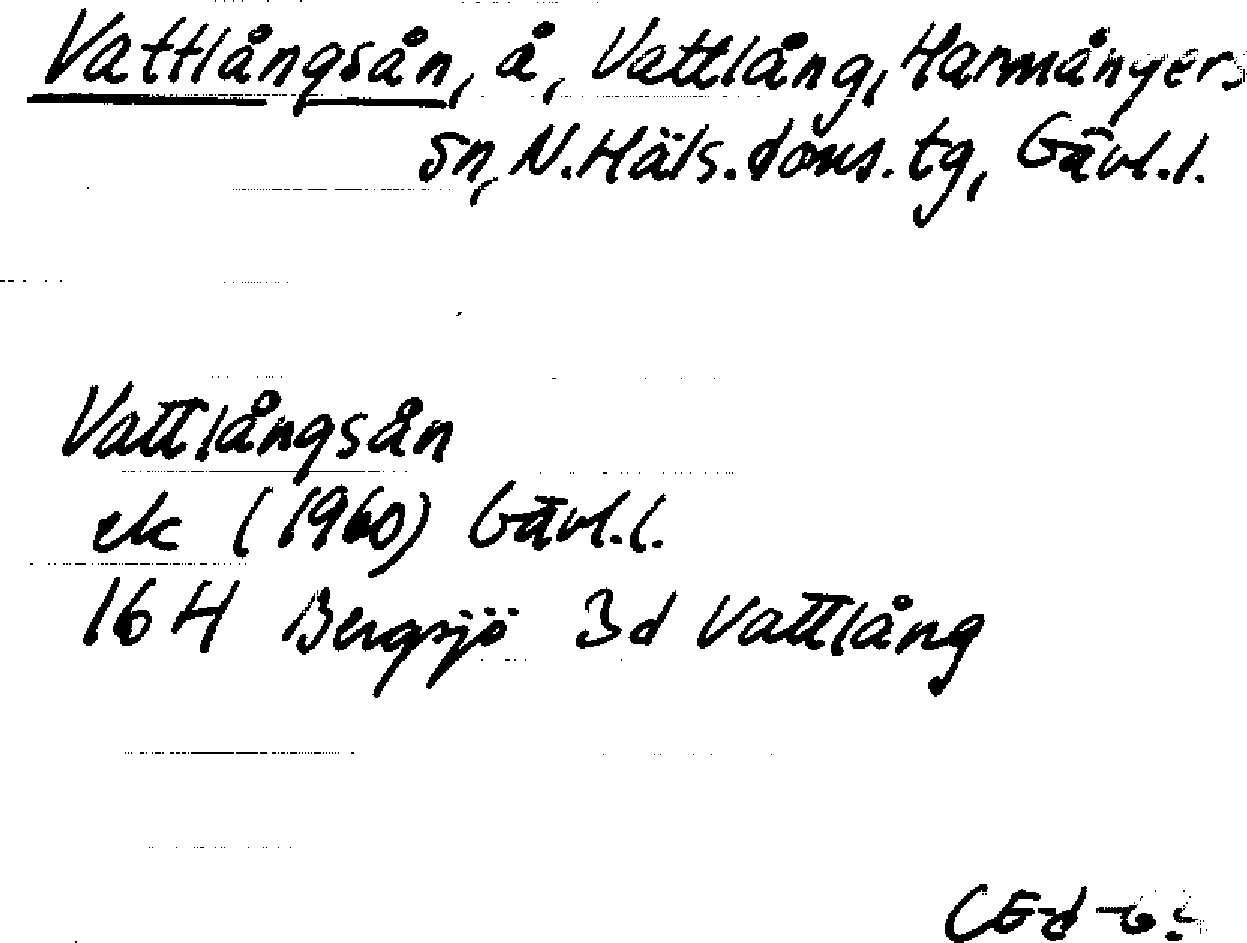 Vattlångsån, å, Vattlång, Harmångers
sn, N.Häls.doms.tg, Gävl.l.
Vattlångsån
ek (1960) Gävl.l.
16 H Bergsjö 3d Vattlång